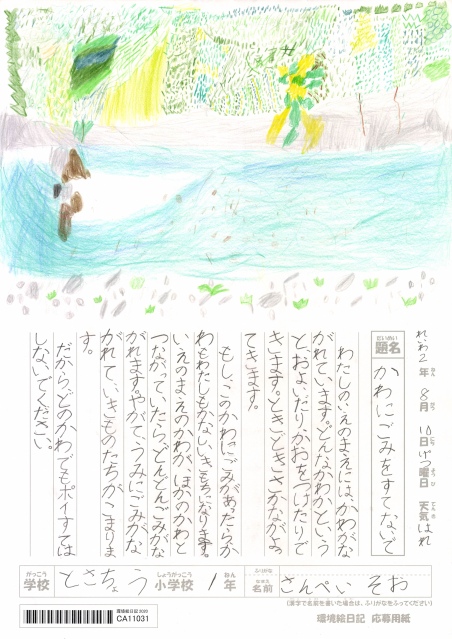 れいわ2年8月10日げつ曜日 天気はれ
題名 かわにごみをすてないで
わたしのいえのまえには、かわがな
がれています。どんなかわかという
と、およいだり、かおをつけたりで
きます。ときどきさかながよっ
てきます。
もし、このかわにごみがあったらか
わもわたしもかなしいきもちになります。
いえのまえのかわが、ほかのかわと
つながっていたら、どんどんごみがな
がれます。やがて、うみにごみがな
がれて、いきものたちがこまりま
す。
だから、どのかわでもポイすては
しないでください。
学校 とさちょう小学校 1年
名前 さんぺい そお
(漢字で名前を書いた場合は、ふりがなをふってください)
環境絵日記2020
CA11031
環境絵日記 応募用紙